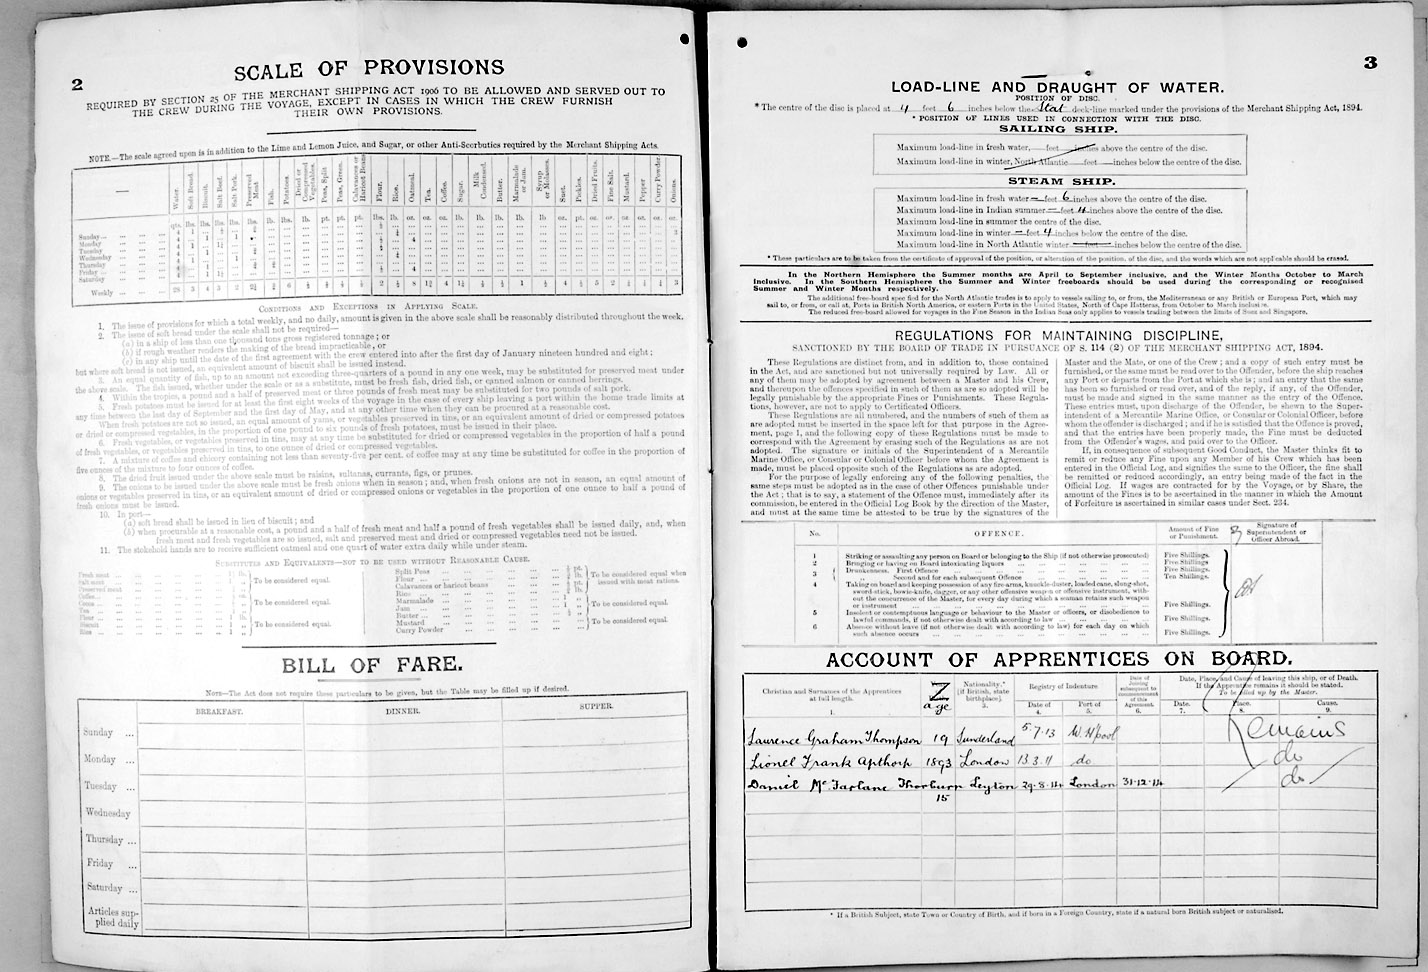 2
SCALE OF PROVISIONS
REQUIRED BY SECTION 25 OF THE MERCHANT SHIPPING ACT 1906 TO BE ALLOWED AND SERVED OUT TO
THE CREW DURING THE VOYAGE, EXCEPT IN CASES IN WHICH THE CREW FURNISH
THEIR OWN PROVISIONS.
NOTE.—The scale agreed upon is in addition to the Lime and Lemon Juice, and Sugar, or other Anti-Scorbutics required by the Merchant Shipping Acts.
Water. Soft Bread. Biscuit. Salt Beef. Salt Pork. Preserved Meat Fish. Potatoes. Dried or Compressed Vegetables. Peas, Split Peas, Green. Calavances or Haricot Beans Flour. Rice. Oatmeal. Tea. Coffee. Sugar. Milk Condensed. Butter. Marmalade or Jam. Syrup or Molasses. Suet. Pickles. Dried Fruits. Fine Salt. Mustard. Pepper Curry Powder. Onions.
Sunday
Monday
Tuesday
Wednesday
Thursday
Friday
Saturday
Weekly
CONDITIONS AND EXCEPTIONS IN APPLYING SCALE.
1. The issue of provisions for which a total weekly, and no daily, amount is given in the above scale shall be reasonably distributed throughout the week.
2. The issue of soft bread under the scale shall not be required—
(a) in a ship of less than one thousand tons gross registered tonnage; or
(b) if rough weather renders the making of the bread impracticable, or
(c) in any ship until the date of the first agreement with the crew entered into after the first day of January nineteen hundred and eight;
but where soft bread is not issued, an equivalent amount of biscuit shall be issued instead.
3. An equal quantity of fish, up to an amount not exceeding three-quarters of a pound in any one week, may be substituted for preserved meat under
the above scale. The fish issued, whether under the scale or as a substitute, must be fresh fish, dried fish, or canned salmon or canned herrings.
4. Within the tropics, a pound and a half of preserved meat or three pounds of fresh meat may be substituted for two pounds of salt pork.
5. Fresh potatoes must be issued for at least the first eight weeks of the voyage in the case of every ship leaving a port within the home trade limits at
any time between the last day of September and the first day of May, and at any other time when they can be procured at a reasonable cost.
When fresh potatoes are not so issued, an equal amount of yams, or vegetables preserved in tins, or an equivalent amount of dried or compressed potatoes
or dried or compressed vegetables, in the proportion of one pound to six pounds of fresh potatoes, must be issued in their place.
6. Fresh vegetables, or vegetables preserved in tins, may at any time be substituted for dried or compressed vegetables in the proportion of half a pound
of fresh vegetables, or vegetables preserved in tins, to one ounce of dried or compressed vegetables.
7. A mixture of coffee and chicory containing not less than seventy-five per cent. of coffee may at any time be substituted for coffee in the proportion of
five ounces of the mixture to four ounces of coffee.
8. The dried fruit issued under the above scale must be raisins, sultanas, currants, figs, or prunes.
9. The onions to be issued under the above scale must be fresh onions when in season; and, when fresh onions are not in season, an equal amount of
onions or vegetables preserved in tins, or an equivalent amount of dried or compressed onions or vegetables in the proportion of one ounce to half a pound of
fresh onions must be issued.
10. In port—
(a) soft bread shall be issued in lieu of biscuit; and
(b) when procurable at a reasonable cost, a pound and a half of fresh meat and half a pound of fresh vegetables shall be issued daily, and, when
fresh meat and fresh vegetables are so issued, salt and preserved meat and dried or compressed vegetables need not be issued.
11. The stokehold hands are to receive sufficient oatmeal and one quart of water extra daily while under steam.
SUBSTITUTES AND EQUIVALENTS—NOT TO BE USED WITHOUT REASONABLE CAUSE.
Fresh meat
Salt meat
Preserved meat
To be considered equal.
Coffee
Cocoa
Tea
To be considered equal.
Flour
Biscuit
Rice
To be considered equal.
Split Peas
Flour
Calavances or haricot beans
Rice
To be considered equal when
issued with meat rations.
Marmalade
Jam
Butter
To be considered equal.
Mustard
Curry Powder
To be considered equal.
BILL OF FARE.
NOTE—The Act does not require these particulars to be given, but the Table may be filled up if desired.
BREAKFAST. DINNER. SUPPER.
Sunday
Monday
Tuesday
Wednesday
Thursday
Friday
Saturday
Articles supplied daily
3
LOAD-LINE AND DRAUGHT OF WATER.
POSITION OF DISC.
* The centre of the disc is placed at 4 feet 6 inches below the Steel deck-line marked under the provisions of the Merchant Shipping Act, 1894.
* POSITION OF LINES USED IN CONNECTION WITH THE DISC.
SAILING SHIP.
Maximum load-line in fresh water, feet inches above the centre of the disc.
Maximum load-line in winter, North Atlantic feet inches below the centre of the disc.
STEAM SHIP.
Maximum load-line in fresh water — feet 6 inches above the centre of the disc.
Maximum load-line in Indian summer — feet 4 inches above the centre of the disc.
Maximum load-line in summer the centre of the disc.
Maximum load-line in winter — feet 4 inches below the centre of the disc.
Maximum load-line in North Atlantic winter — feet — inches below the centre of the disc.
* These particulars are to be taken from the certificate of approval of the position, or alteration of the position, of the disc, and the words which are not applicable should be erased.
In the Northern Hemisphere the Summer months are April to September inclusive, and the Winter Months October to March
inclusive. In the Southern Hemisphere the Summer and Winter freeboards should be used during the corresponding or recognised
Summer and Winter Months respectively.
The additional free-board specified for the North Atlantic trades is to apply to vessels sailing to, or from, the Mediterranean or any British or European Port, which may
sail to, or from, or call at, Ports in British North America, or eastern Ports in the United States, North of Cape Hatteras, from October to March inclusive.
The reduced free-board allowed for voyages in the Fine Season in the Indian Seas only applies to vessels trading between the limits of Suez and Singapore.
REGULATIONS FOR MAINTAINING DISCIPLINE,
SANCTIONED BY THE BOARD OF TRADE IN PURSUANCE OF S. 114 (2) OF THE MERCHANT SHIPPING ACT, 1894.
These Regulations are distinct from, and in addition to, those contained
in the Act, and are sanctioned but not universally required by Law. All or
any of them may be adopted by agreement between a Master and his Crew,
and thereupon the offences specified in such of them as are so adopted will be
legally punishable by the appropriate Fines or Punishments. These Regula-
tions, however, are not to apply to Certificated Officers.
These Regulations are all numbered, and the numbers of such of them as
are adopted must be inserted in the space left for that purpose in the Agree-
ment, page 1, and the following copy of these Regulations must be made to
correspond with the Agreement by erasing such of the Regulations as are not
adopted. The signature or initials of the Superintendent of a Mercantile
Marine Office, or Consular or Colonial Officer before whom the Agreement is
made, must be placed opposite such of the Regulations as are adopted.
For the purpose of legally enforcing any of the following penalties, the
same steps must be adopted as in the case of other Offences punishable under
the Act; that is to say, a statement of the Offence must, immediately after its
commission, be entered in the Official Log Book by the direction of the Master,
and must at the same time be attested to be true by the signatures of the
Master and the Mate, or one of the Crew; and a copy of such entry must be
furnished, or the same must be read over to the Offender, before the ship reaches
any Port or departs from the Port at which she is; and an entry that the same
has been so furnished or read over, and of the reply, if any, of the Offender,
must be made and signed in the same manner as the entry of the Offence.
These entries must, upon discharge of the Offender, be shown to the Super-
intendent of a Mercantile Marine Office, or Consular or Colonial Officer, before
whom the offender is discharged; and if he is satisfied that the Offence is proved,
and that the entries have been properly made, the Fine must be deducted
from the Offender's wages, and paid over to the Officer.
If, in consequence of subsequent Good Conduct, the Master thinks fit to
remit or reduce any Fine upon any Member of his Crew which has been
entered in the Official Log, and signifies the same to the Officer, the fine shall
be remitted or reduced accordingly, an entry being made of the fact in the
Official Log. If wages are contracted for by the Voyage, or by Share, the
amount of the Fines is to be ascertained in the manner in which the Amount
of Forfeiture is ascertained in similar cases under Sect. 234.
No. OFFENCE. Amount of Fine or Punishment. Signature of Superintendent or Officer Abroad.
1 Striking or assaulting any person on Board or belonging to the Ship (if not otherwise prosecuted) Five Shillings.
2 Bringing or having on Board intoxicating liquors Five Shillings.
3 Drunkenness. First Offence Five Shillings.
Second and for each subsequent Offence Ten Shillings.
4 Taking on board and keeping possession of any fire-arms, knuckle-duster, loaded cane, slung-shot,
sword-stick, bowie-knife, dagger, or any other offensive weapon or offensive instrument, with-
out the concurrence of the Master, for every day during which a seaman retains such weapon
or instrument Five Shillings.
5 Insolent or contemptuous language or behaviour to the Master or officers, or disobedience to
lawful commands, if not otherwise dealt with according to law Five Shillings.
6 Absence without leave (if not otherwise dealt with according to law) for each day on which
such absence occurs Five Shillings.
ACCOUNT OF APPRENTICES ON BOARD.
Christian and Surnames of the Apprentices at full length. 1.
age
Nationality.* (if British, state birthplace). 3.
Registry of Indenture
Date of 4. Port of 5.
Date of Joining subsequent to commencement of this Agreement. 6.
Date, Place, and Cause of leaving this ship, or of Death.
If the Apprentice remains it should be stated.
To be filled up by the Master.
Date. 7. Place. 8. Cause. 9.
Laurence Graham Thompson 19 Sunderland 5.7.13 W. H'pool Remains
Lionel Frank Apthorp 1893 London 13.3.11 do do
Daniel Mc Farlane Thorburn 15 Leyton 29.8.14 London 31.12.14 do
* If a British Subject, state Town or Country of Birth, and if born in a Foreign Country, state if a natural born British subject or naturalised.